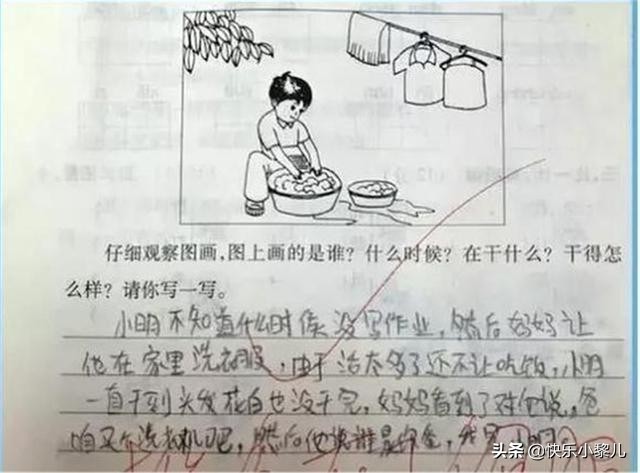 仔细观察图画,图上画的是谁?什么时候?在干什么?干得怎
么样?请你写一写。
小明不知道什么时候没写作业,然后妈妈让
他在家里洗衣服,由于活太多了还不让吃饭,小明
一直干到头发花白也没干完,妈妈看到了对他说,爸
咱买个洗衣机吧,然后他说谁是你爸,我
头条 @快乐小黎儿